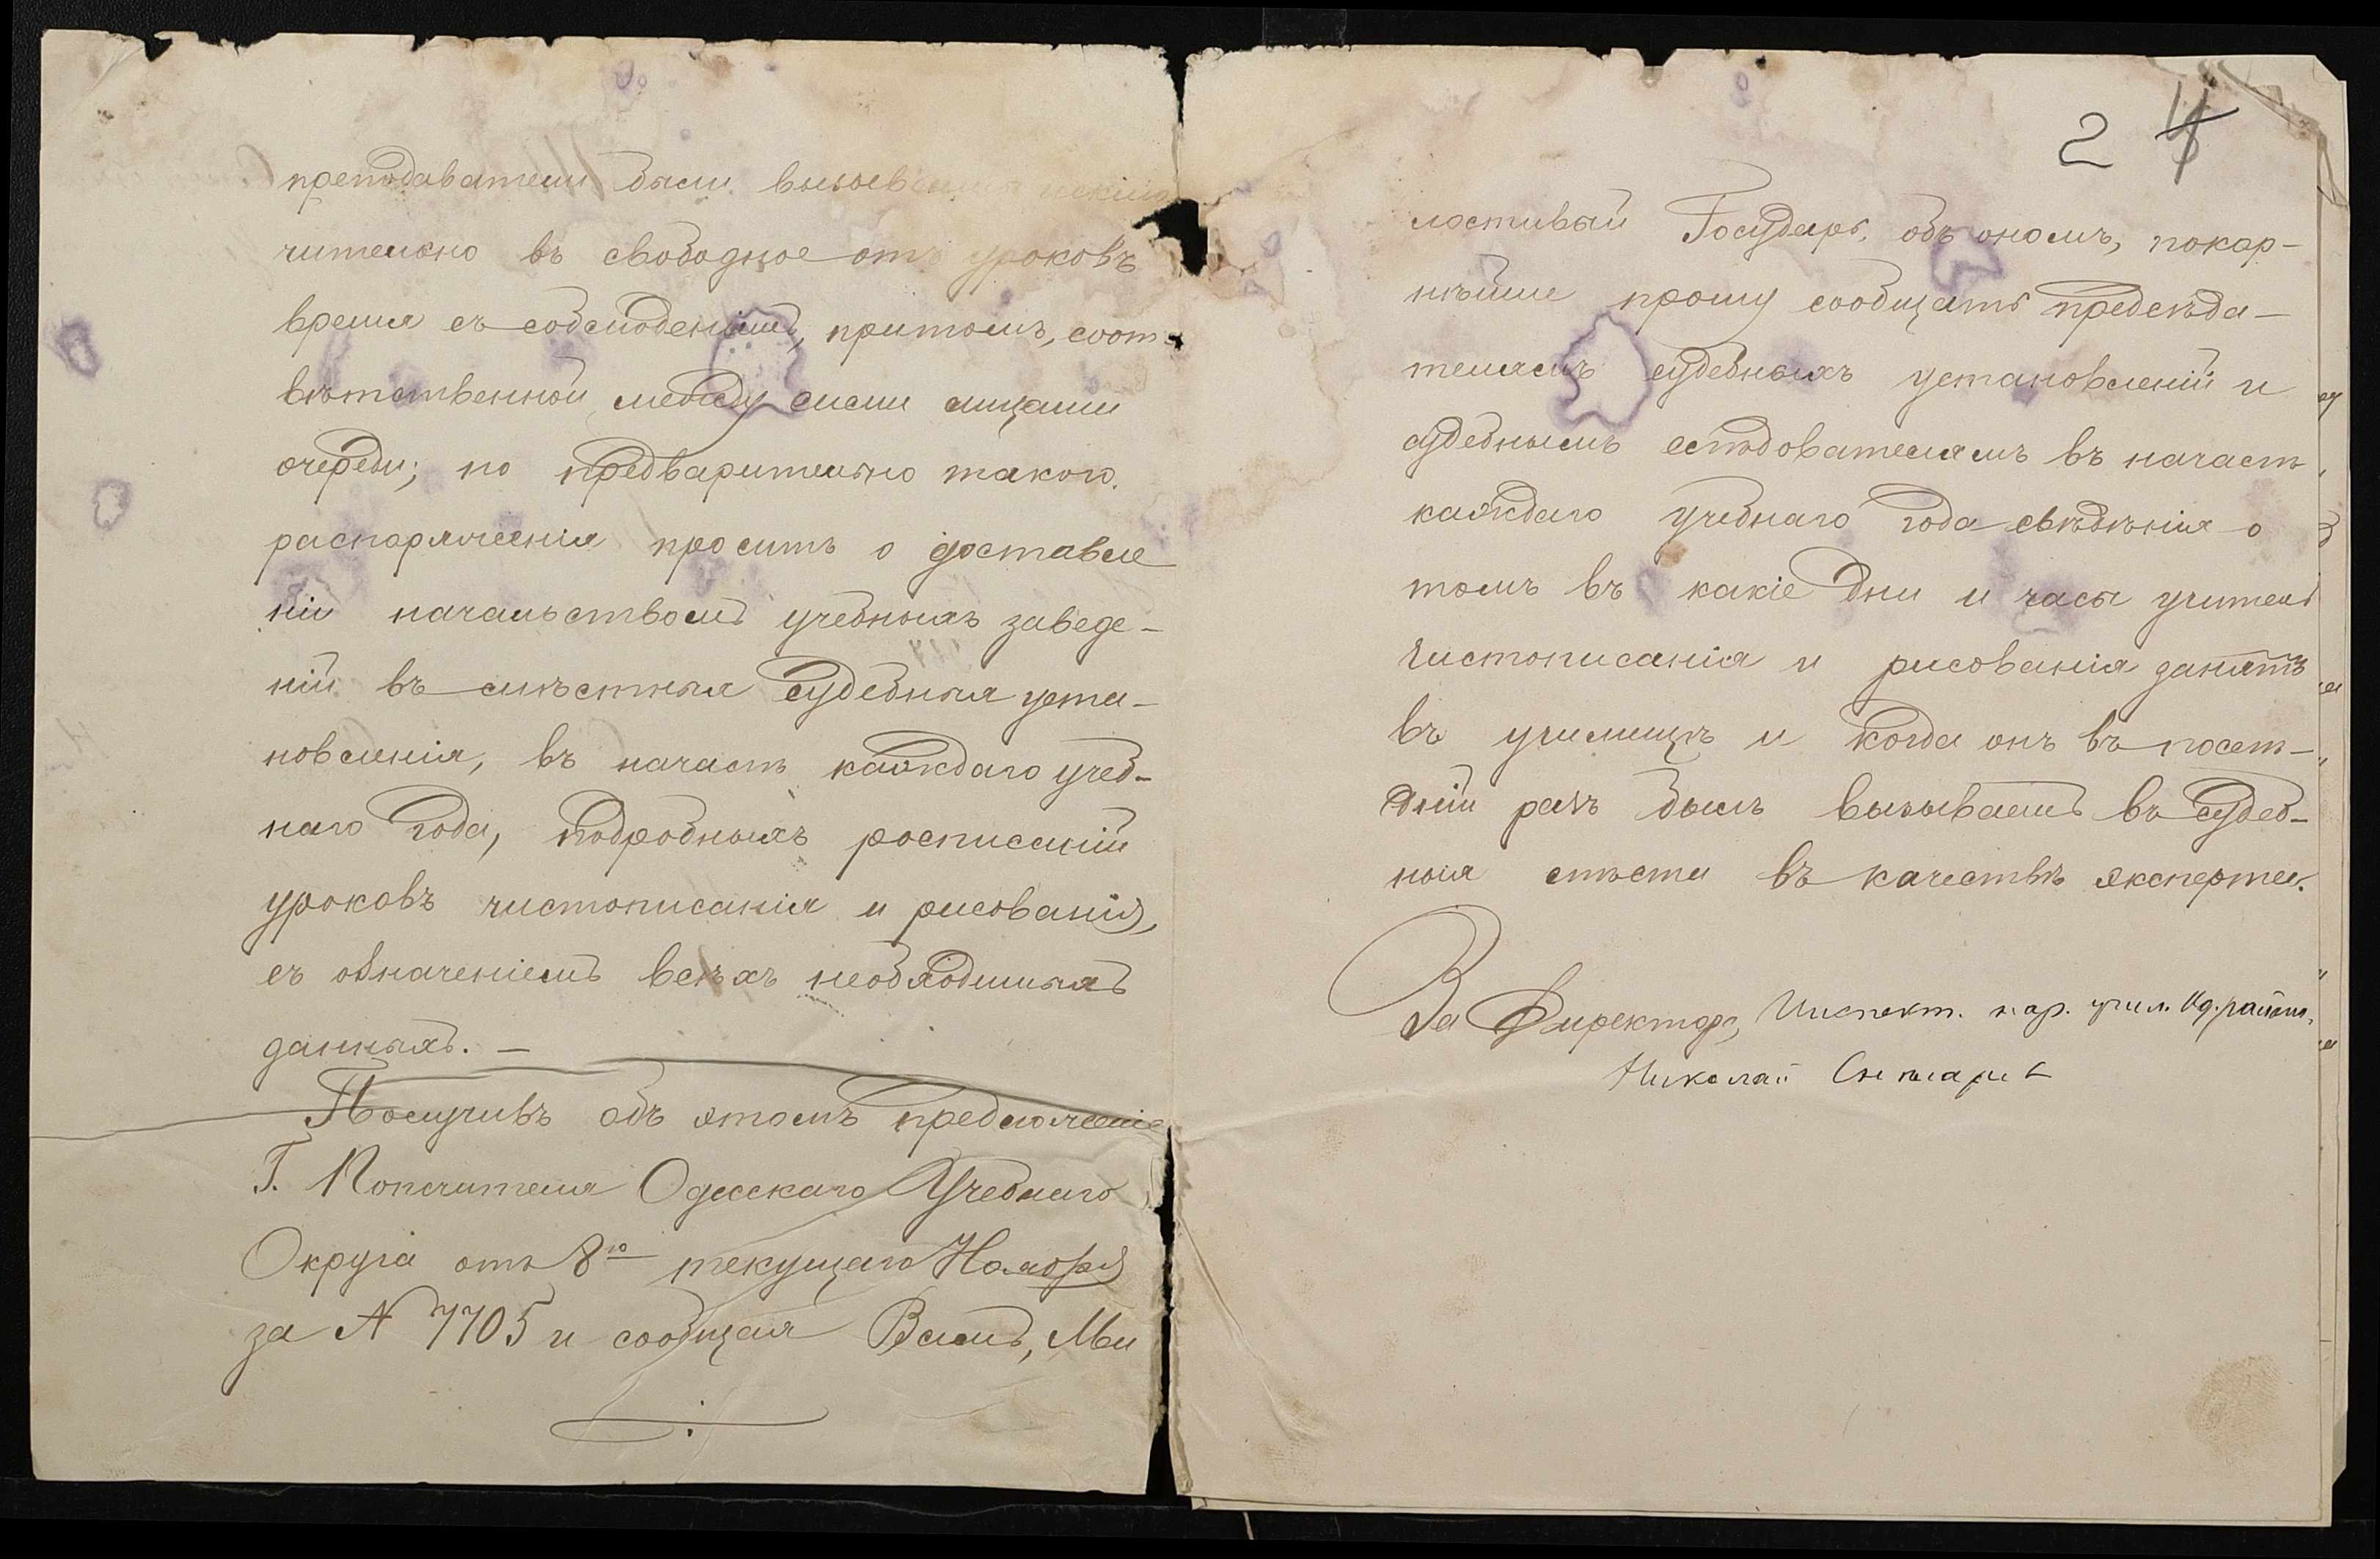 преподаватели были вызываемы исклю
чительно въ свободное отъ уроковъ
время съ соблюденіемъ, притомъ, соот-
вѣтственной между сими лицами
очереди; но предварительно такого
распоряженія просить о доставле
ніи начальствомъ учебныхъ заведе-
ній въ мѣстныя судебныя уста-
новленія, въ началѣ каждаго учеб-
наго года, подробныхъ росписаній
уроковъ чистописанія и рисованія,
съ обначеніемъ всѣхъ необходимыхъ
данныхъ. —
Получивъ объ этомъ предложеніе
Г. Попечителя Одесскаго Учебнаго
Округа отъ 8го текущаго Ноября
за № 7705 и сообщая Вамъ, Ми
2 4
лостивый Государь, объ ономъ, покор-
нѣйше прошу сообщать предсѣда-
телямъ судебныхъ установленій и
судебнымъ слѣдователямъ въ началѣ
каждаго учебнаго года свѣдѣнія о
томъ въ какіе дни и часы учитель
чистописанія и рисованія занятъ
въ училищѣ и когда онъ въ послѣ-
дній разъ былъ вызываемъ въ судеб-
ныя мѣста въ качествѣ эксперта.
За Директора, Инспект. нар. учил. Од. района,
Николай